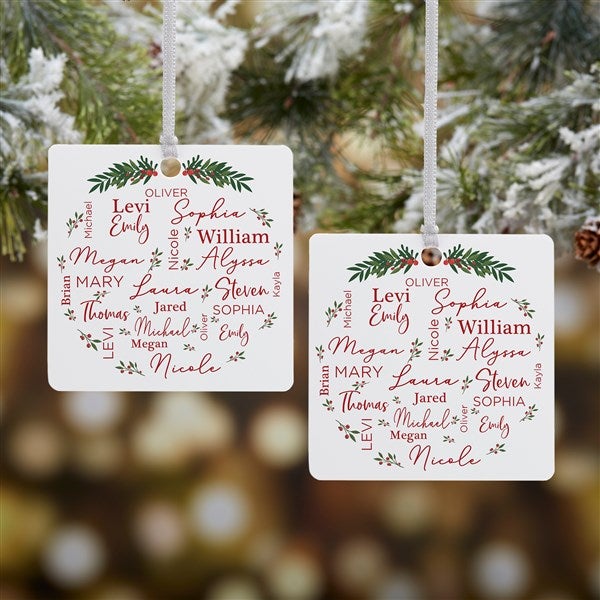 OLIVER
Michael Levi Sophia
Emily Nicole William
Megan Alyssa
Brian MARY Laura Steven Kayla
Thomas Jared SOPHIA
LEVI Michael Oliver Emily
Megan
Nicole
OLIVER
Michael Levi Sophia
Emily Nicole William
Megan Alyssa
Brian MARY Laura Steven Kayla
Thomas Jared SOPHIA
LEVI Michael Oliver Emily
Megan
Nicole